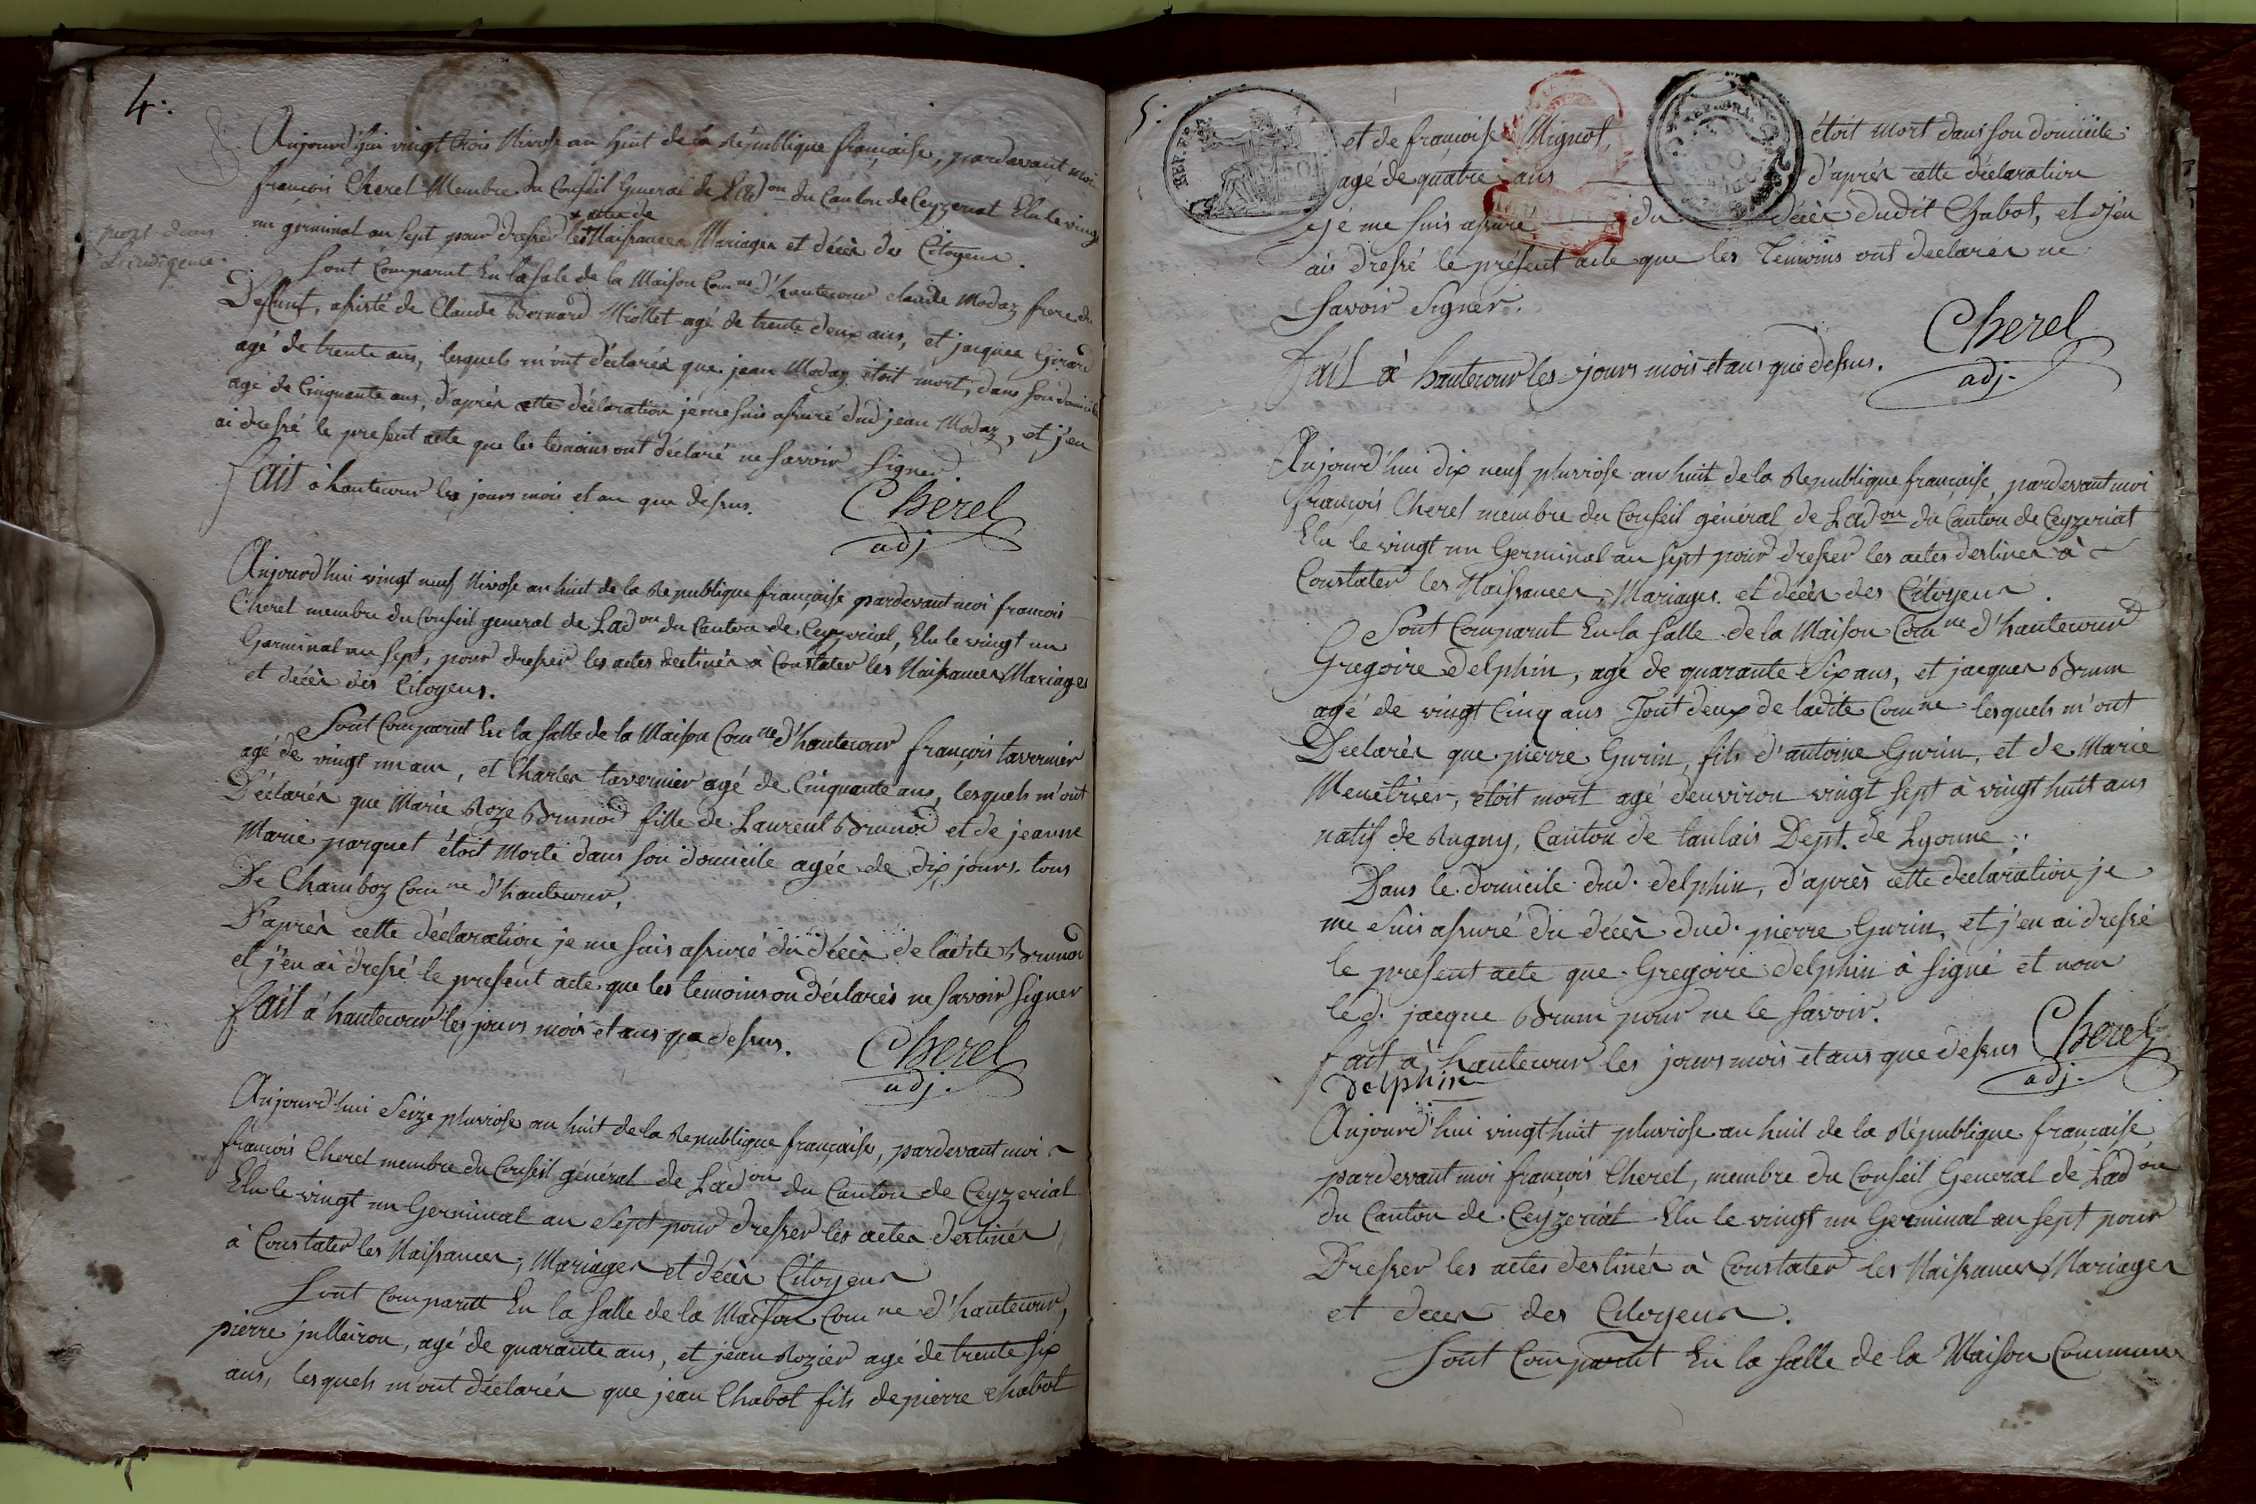 4.
Aujourd'hui vingt trois Nivose an huit de la République française, pardevant moi
françois Cherel Membre du Conseil General de L'ad^on du Canton de Ceyzeriat Elu le vingt
un germinal an sept pour dresser les actes de Naissances Mariages et décès des Citoyens.
mort dans
L'indigence.
Sont Comparut En la sale de la Maison Com^ne d'hautecour claude Modaz frere du
Deffunt, assisté de Claude Bernard Miollet agé de trente deux ans, et jacques Girard
agé de trente ans, lesquels m'ont déclarés que jean Modaz étoit mort, dans son domicile
agé de Cinquante ans, d'après cette déclaration je me suis assuré dud jean Modaz, et j'en
ai dressé le present acte que les temoins ont déclaré ne savoir signer
fait à hautecour les jours mois et an que dessus.
Cherel
adj
Aujourd'hui vingt neuf Nivose an huit de la République française pardevant moi francois
Cherel membre du Conseil general de L'ad^on du Canton de Ceyzeriat, Elu le vingt un
Germinal an sept, pour dresser les actes destinés à Constater les Naissances Mariages
et décès des Citoyens.
Sont Comparut En la salle de la Maison Com^ne d'hautecour françois tavernier
agé de vingt un ans, et Charles tavernier agé de Cinquante ans, lesquels m'ont
Déclarés que Marie Roze Brunod fille de Laurent Brunod et de jeanne
Marie parquet étoit Morte dans son domicile agée de dix jours. tous
De Chamboz Com^ne d'hautecour,
D'après cette déclaration je me suis assuré du décès de ladite Brunod
et j'en ai dressé le present acte que les temoins on déclarés ne savoir signer
fait à hautecour les jours mois et ans que dessus.
Cherel
adj.
Aujourd'hui Seize pluviose an huit de la Republique française, pardevant moi
françois Cherel membre du Conseil général de L'ad^on du Canton de Ceyzeriat
Elu le vingt un Germinal an Sept pour dresser les actes destinés
à Constater les Naissances, Mariages et décès Citoyens
Sont Comparut En la salle de la Maison Com^ne d'hautecour,
pierre julleiron, agé de quarante ans, et jean Rozier agé de trente six
ans, lesquels m'ont déclarés que jean Chabot fils de pierre Chabot
5.
REP. FRA.
et de francoise Mignot, étoit mort dans son domicile
agé de quatre ans d'après cette déclaration
je me suis assuré du décès dudit Chabot, et j'en
ais dressé le présent acte que les Temoins ont declarés ne
Savoir Signer.
Cherel
adj.
fait à hautecour les jours mois et ans que dessus.
Aujourd'hui dix neuf pluviose an huit de la Republique française, pardevant moi
françois Cherel membre du Conseil général de L'ad^on du Canton de Ceyzeriat
Elu le vingt un Germinal an sept pour dresser les actes destinés à
Constater les Naissances, Mariages et décès des Citoyens.
Sont Comparut En la Salle de la Maison Com^ne d'hautecour
Gregoire delphin, agé de quarante Six ans, et jacques Brum
agé de vingt Cinq ans Tout deux de ladite Com^ne lesquels m'ont
Declarés que pierre Gurin, fils d'antoine Gurin, et de Marie
Menétrier, étoit mort agé d'environ vingt sept à vingt huit ans
natif de Rugny, Canton de tanlais Dept. de Lyonne.
Dans le domicile dud. delphin, d'après cette declaration je
me Suis assuré du décès dud. pierre Gurin, et j'en ai dressé
le present acte que Gregoire delphin à signé et non
led. jacque Brum pour ne le Savoir.
fait à hautecour les jours mois et ans que dessus Cherel
delphin adj.
Aujourd'hui vingt huit pluviose an huit de la République francaise,
pardevant moi françois Cherel, membre du Conseil General de L'ad^on
du Canton de Ceyzeriat Elu le vingt un Germinal an sept pour
Dresser les actes destinés à Constater les Naissances Mariages
et deces des Citoyens.
Sont Comparut En la salle de la Maison Commune